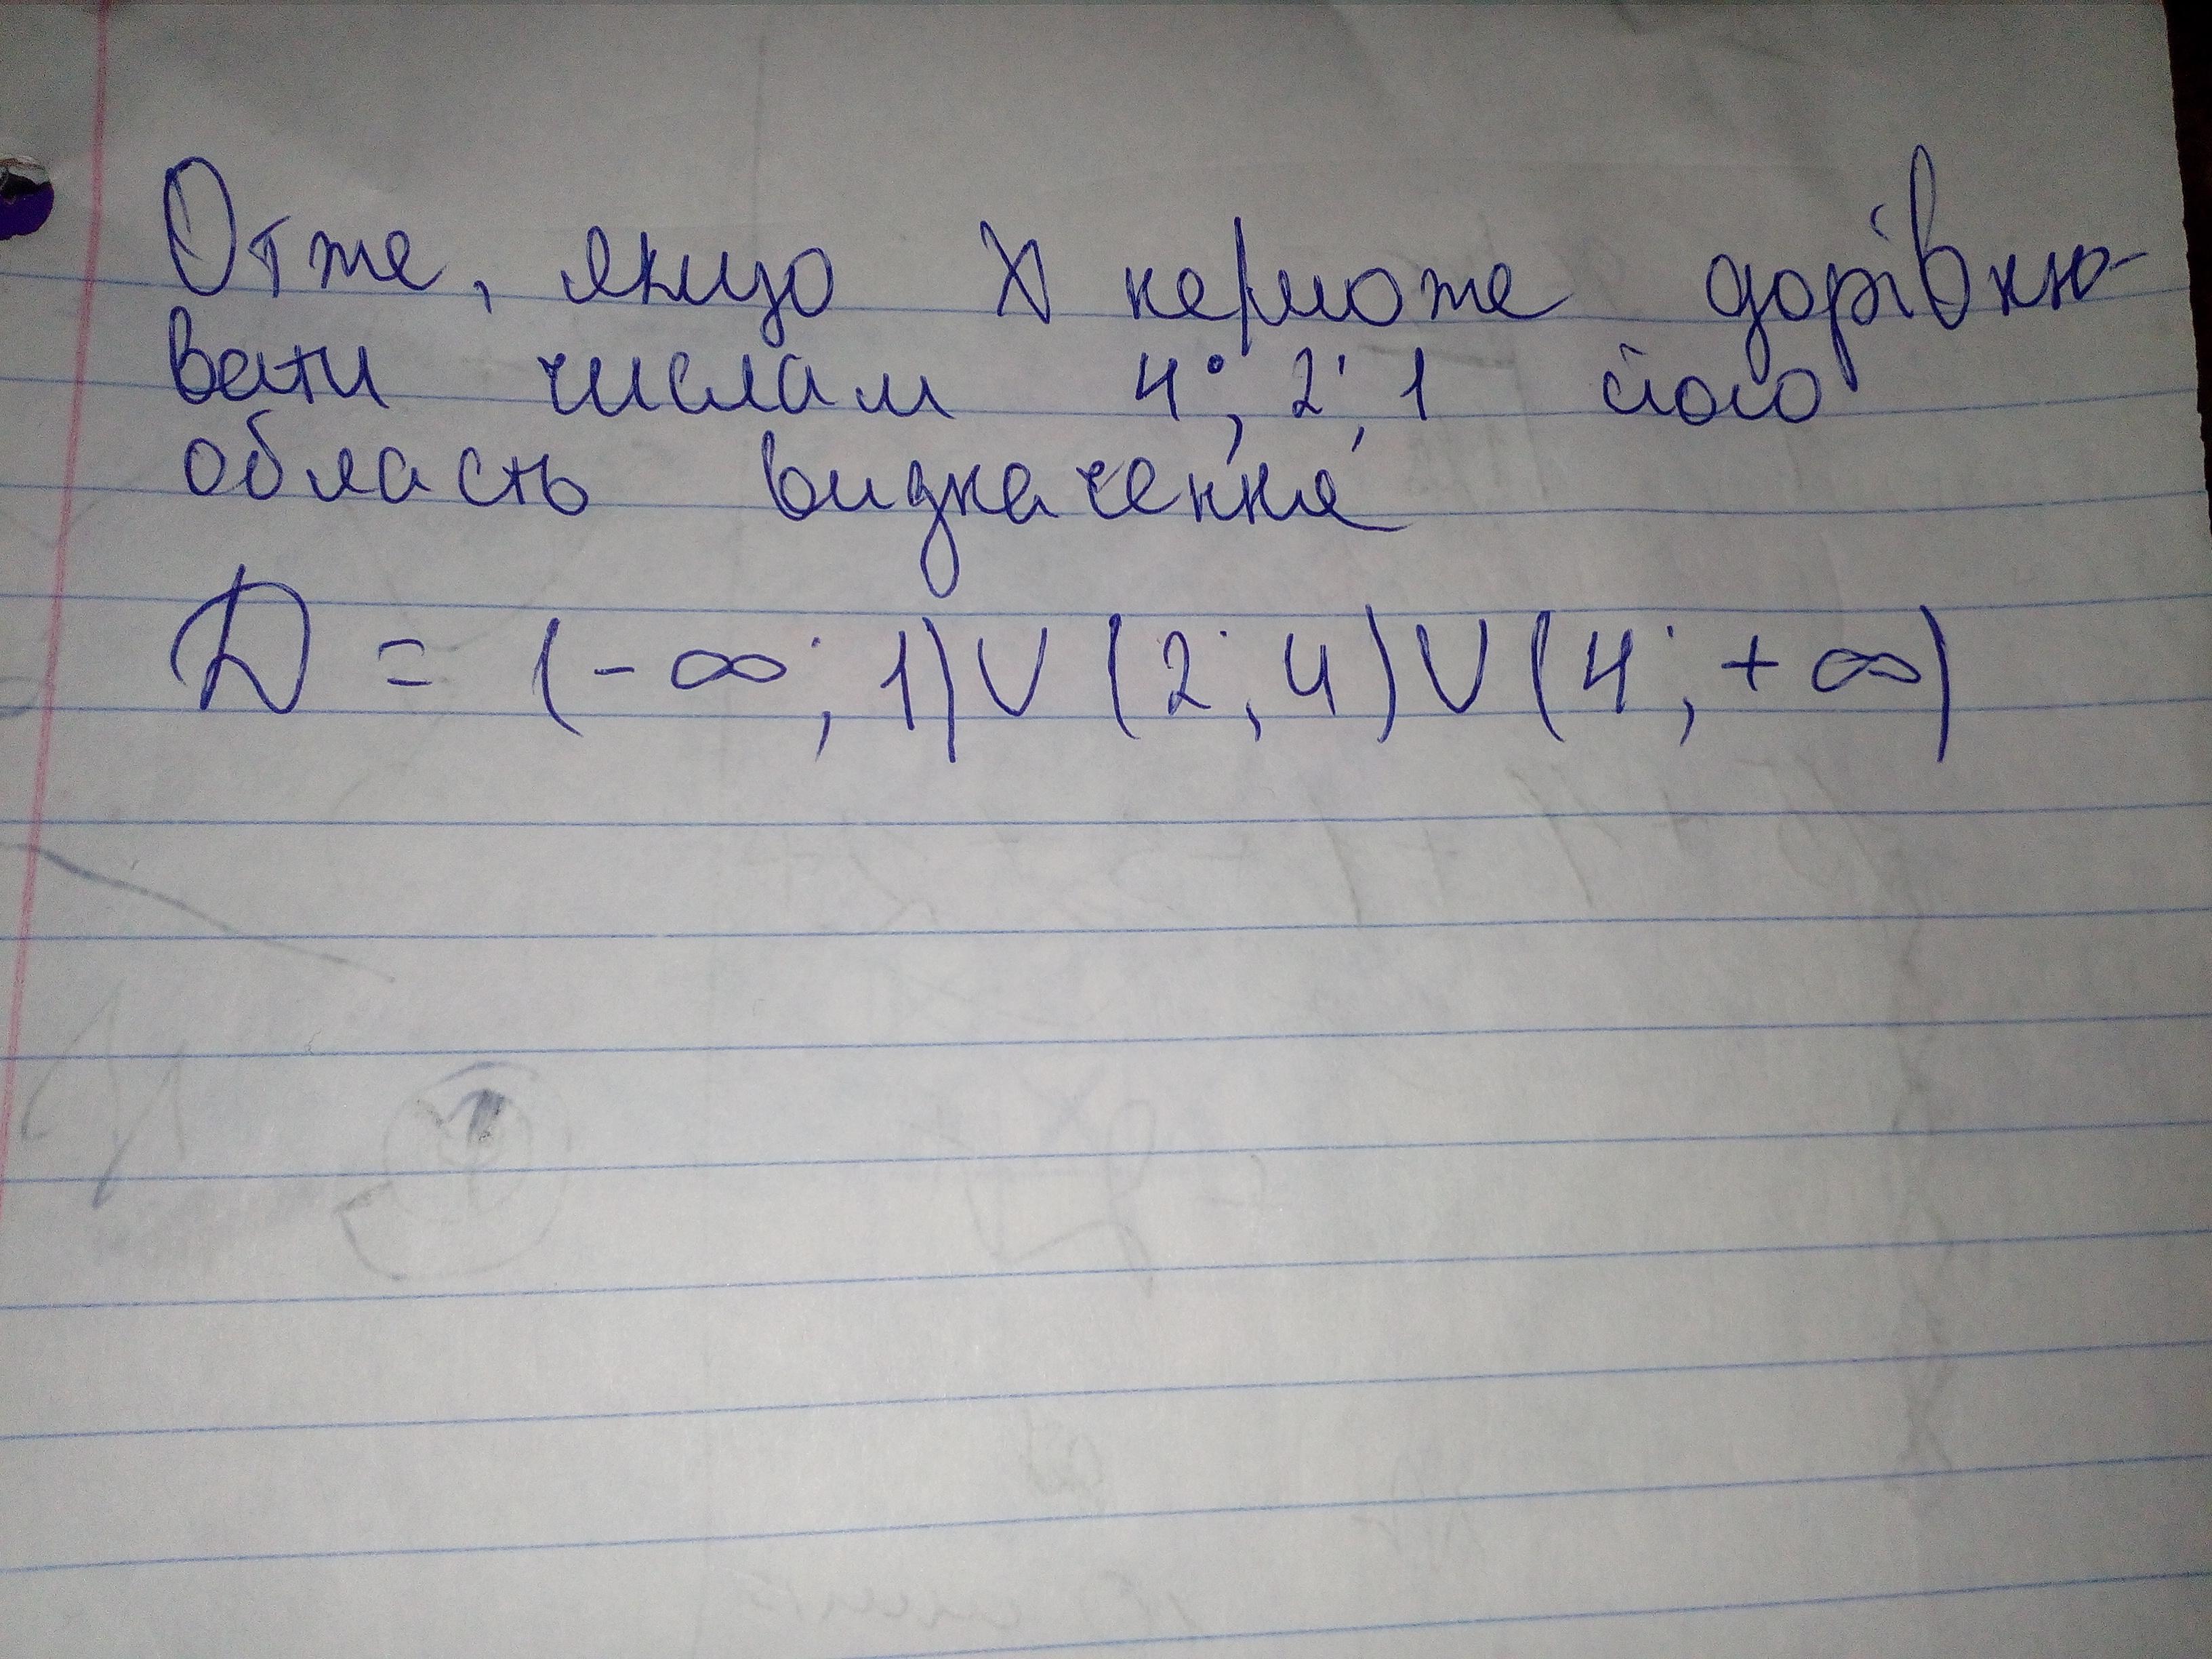 Отже, якщо x не/може дорівню-
вати числам 4; 2; 1 його
область визначення
D = (-∞; 1)∪(2; 4)∪(4; +∞)